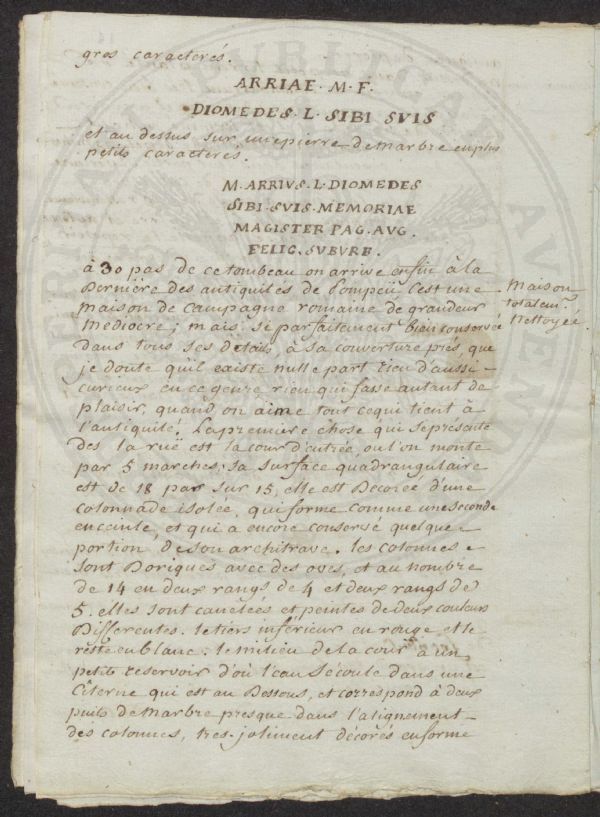 gros caracteres.
ARRIAE · M · F ·
DIOMEDES · L · SIBI SVIS
et au dessus sur une pierre de marbre en plus
petits caracteres.
M · ARRIVS · L · DIOMEDES
SIBI · SVIS · MEMORIAE
MAGISTER PAG · AVG ·
FELIC · SVBVRB ·
à 30 pas de ce tombeau on arrive enfin à la
Derniere des antiquités de Pompeii C'est une
maison de Campagne romaine de grandeur
Mediocre; mais si parfaitement bien conservée
dans tous ses details à sa couverture prés, que
je doute qu'il existe nulle part rien d'aussi
curieux en ce genre rien qui fasse autant de
plaisir, quand on aime tout ce qui tient à
l'antiquité, La premiere chose qui se présente
des la ruë est la cour d'entrée, ou l'on monte
par 5 marches; sa surface quadrangulaire
est de 18 pas sur 15, elle est Decorée d'une
colonnade isolée, qui forme comme une seconde
enceinte, et qui a encore conservé quelque
portion de son architrave. les colonnes
sont Doriques avec des oves, et au nombre
de 14 en deux rangs de 4 et deux rangs de
5. elles sont canelées et peintes de deux couleurs
Differentes. le tiers inférieur en rouge et le
reste en blanc. le milieu de la cour a un
petit reservoir d'où l'eau s'écoule dans une
Citerne qui est au Dessous, et correspond à deux
puits de marbre presque dans l'alignement
des colonnes, tres-joliment décorés en forme
Maison
totalemt
Nettoyée.